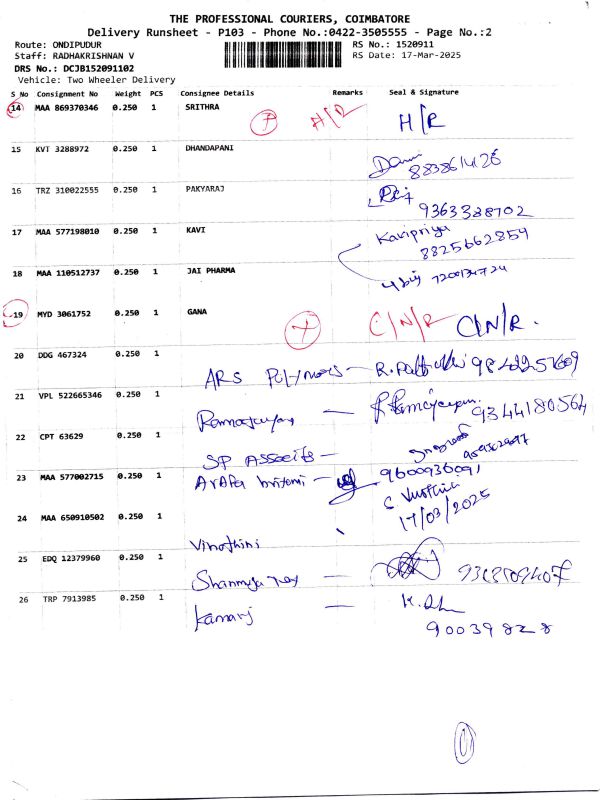 THE PROFESSIONAL COURIERS, COIMBATORE
Delivery Runsheet - P103 - Phone No.:0422-3505555 - Page No.:2
Route: ONDIPUDUR RS No.: 1520911
Staff: RADHAKRISHNAN V RS Date: 17-Mar-2025
DRS No.: DCJB152091102
Vehicle: Two Wheeler Delivery
S No Consignment No Weight PCS Consignee Details Remarks Seal & Signature
14 MAA 869370346 0.250 1 SRITHRA
H/R H/R
15 KVT 3288972 0.250 1 DHANDAPANI
16 TRZ 310022555 0.250 1 PAKYARAJ
9363338702
17 MAA 577198010 0.250 1 KAVI
Kavipriya
8825662859
18 MAA 110512737 0.250 1 JAI PHARMA
19 MYD 3061752 0.250 1 GANA
C/N/R C/N/R.
20 DDG 467324 0.250 1
ARS
21 VPL 522665346 0.250 1
9344180564
22 CPT 63629 0.250 1
SP
23 MAA 577002715 0.250 1
9600936091
24 MAA 650910502 0.250 1
17/03/2025
Vinothini
25 EDQ 12379960 0.250 1
26 TRP 7913985 0.250 1
Kanaraj